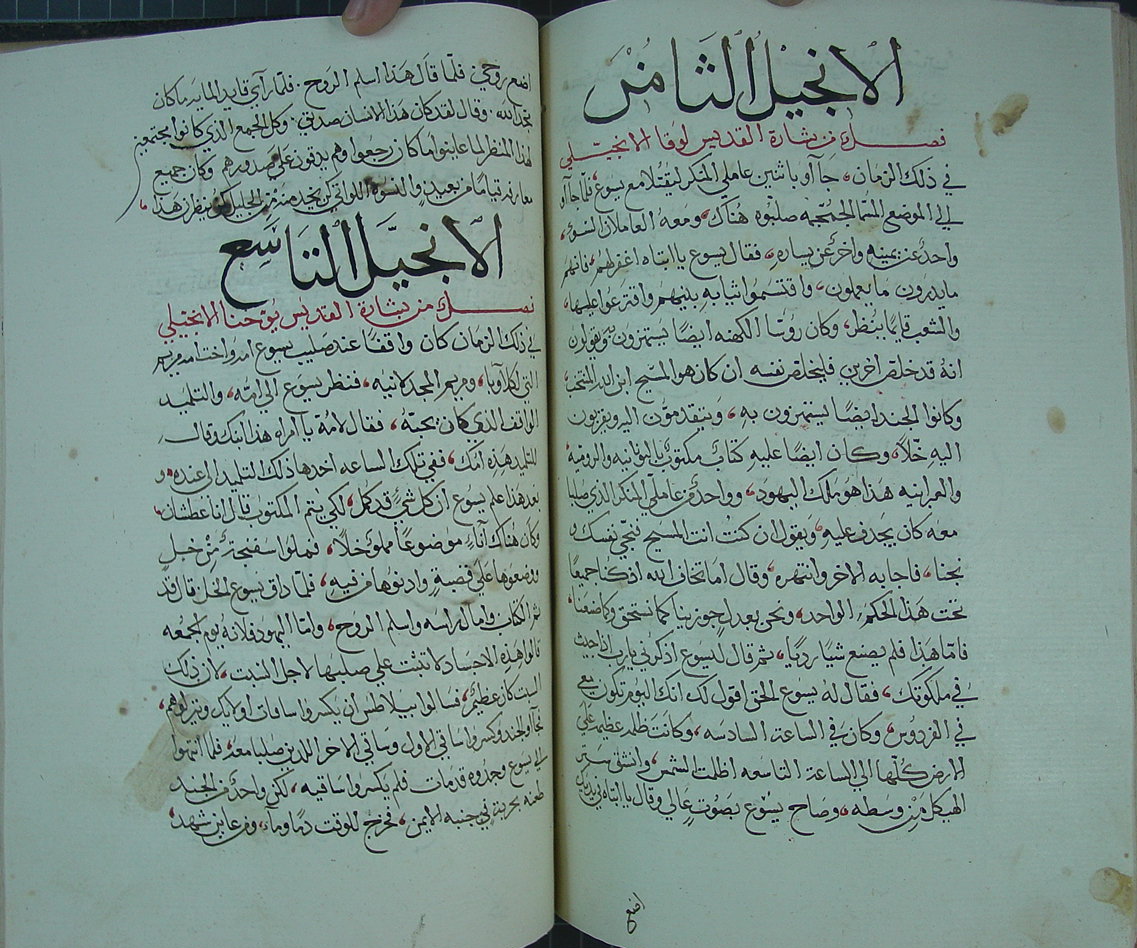 الانجيل الثامن
فصل من بشارة القديس لوقا الانجيلي
في ذلك الزمان، جآ آو باثنين عاملي المنكر ليقتلا مع يسوع، فلما جاآو
الى الموضع المسما الجمجمه صلبوه هناك، ومعه العاملان السوء،
واحد عن يمينه واخر عن يساره، فقال يسوع يا ابتاه اغفر لهم، فانهم
ما يدرون ما يعملون، واقتسموا ثيابه بينهم واقترعوا عليها،
والشعب قايما ينظر، وكان روسا الكهنه ايضًا يستهزون ويقولون
انهُ قد خلص اخرين فليخلص نفسه ان كان هو المسيح ابن الله المنتخب
وكانوا الجند ايضًا يستهزون به، ويتقدمون اليه ويقربون
اليهِ خلًا، وكان ايضًا عليهِ كتابٌ مكتوب باليونانيه والروميه
والعبرانيه هذا هو ملك اليهود، وواحد من عاملي المنكر الذي صلبا
معه كان يجدف عليه، ويقول ان كنت انت المسيح فنجي نفسك و
نجنا، فاجابه الاخر وانتهره، وقال اما تخاف الله اذ كنا جميعًا
تحت هذا الحكم الواحد، ونحن بعدل جوزينا كما نستحق وكما صنعنا،
فاما هذا فلم يصنع شيًا رديًا، ثم قال ليسوع اذكرني يارب اذا جيت
في ملكوتك، فقال له يسوع الحق اقول لك انك اليوم تكون معي
في الفردوس، وكان في الساعة السادسه، وكانت ظلمه عظيمه على
الارض كلها الي الساعة التاسعه اظلمت الشمس، وانشق ستر
الهيكل من وسطه، وصاح يسوع بصوت عالي وقال يا ابتاه في يديك
اضع
اضع روحي، فلما قال هذا اسلم الروح، فلما رآي قايد المايه ما كان
مجد الله، وقال لقد كان هذا الانسان صديق، وكل الجمع الذي كانوا مجتمعين
لهذا المنظر لما عاينوا ما كان رجعوا وهم يدقون على صدورهم وكان جميع
معارفه قيامًا من بعيد، والنسوة اللواتي كن يخدمنه من الجليل ينظرن هذا،
الانجيل التاسع
فصل من بشارة القديس يوحنا الانجيلي
في ذلك الزمان كان واقفًا عند صليب يسوع امه واخت امه مريم
التي لكلاوبا، ومريم المجدلانيه، فنظر يسوع الي امه، والتلميد
الواقف الذي كان يحبهُ، فقال لامهُ يا امراه هذا ابنك وقال
للتلميد هذه امك، ففي تلك الساعه اخذها ذلك التلميد الي عنده، و
بعد هذا علم يسوع ان كل شي قد كمل، لكي يتم المكتوب قال انا عطشان،
وكان هناك آناء موضوعًا مملوء خلًا، فملوا سفنجة من خل
ووضعوها علي قصبة وادنوها من فيه، فلما ذاق يسوع الخل قال قد
تم الكتاب وامال راسه واسلم الروح، واما اليهود فلانه يوم الجمعه
قالوا هذه الاجساد لا تثبت علي صليبها لاجل السبت، لان ذلك
السبت كان عظيم، فسالوا بيلاطس ان يكسروا ساقات اوليك وينزلوهم،
فجآ آو الجند وكسروا ساقي الاول وساقي الاخر اللدين صلبا معه، فلما انتهوا
الي يسوع وجدوه قد مات فلم يكسروا ساقيه، لكن واحد من الجند
طعنه بحربة في جنبه الايمن، فخرج للوقت دم وماء، ومن عاين شهد،